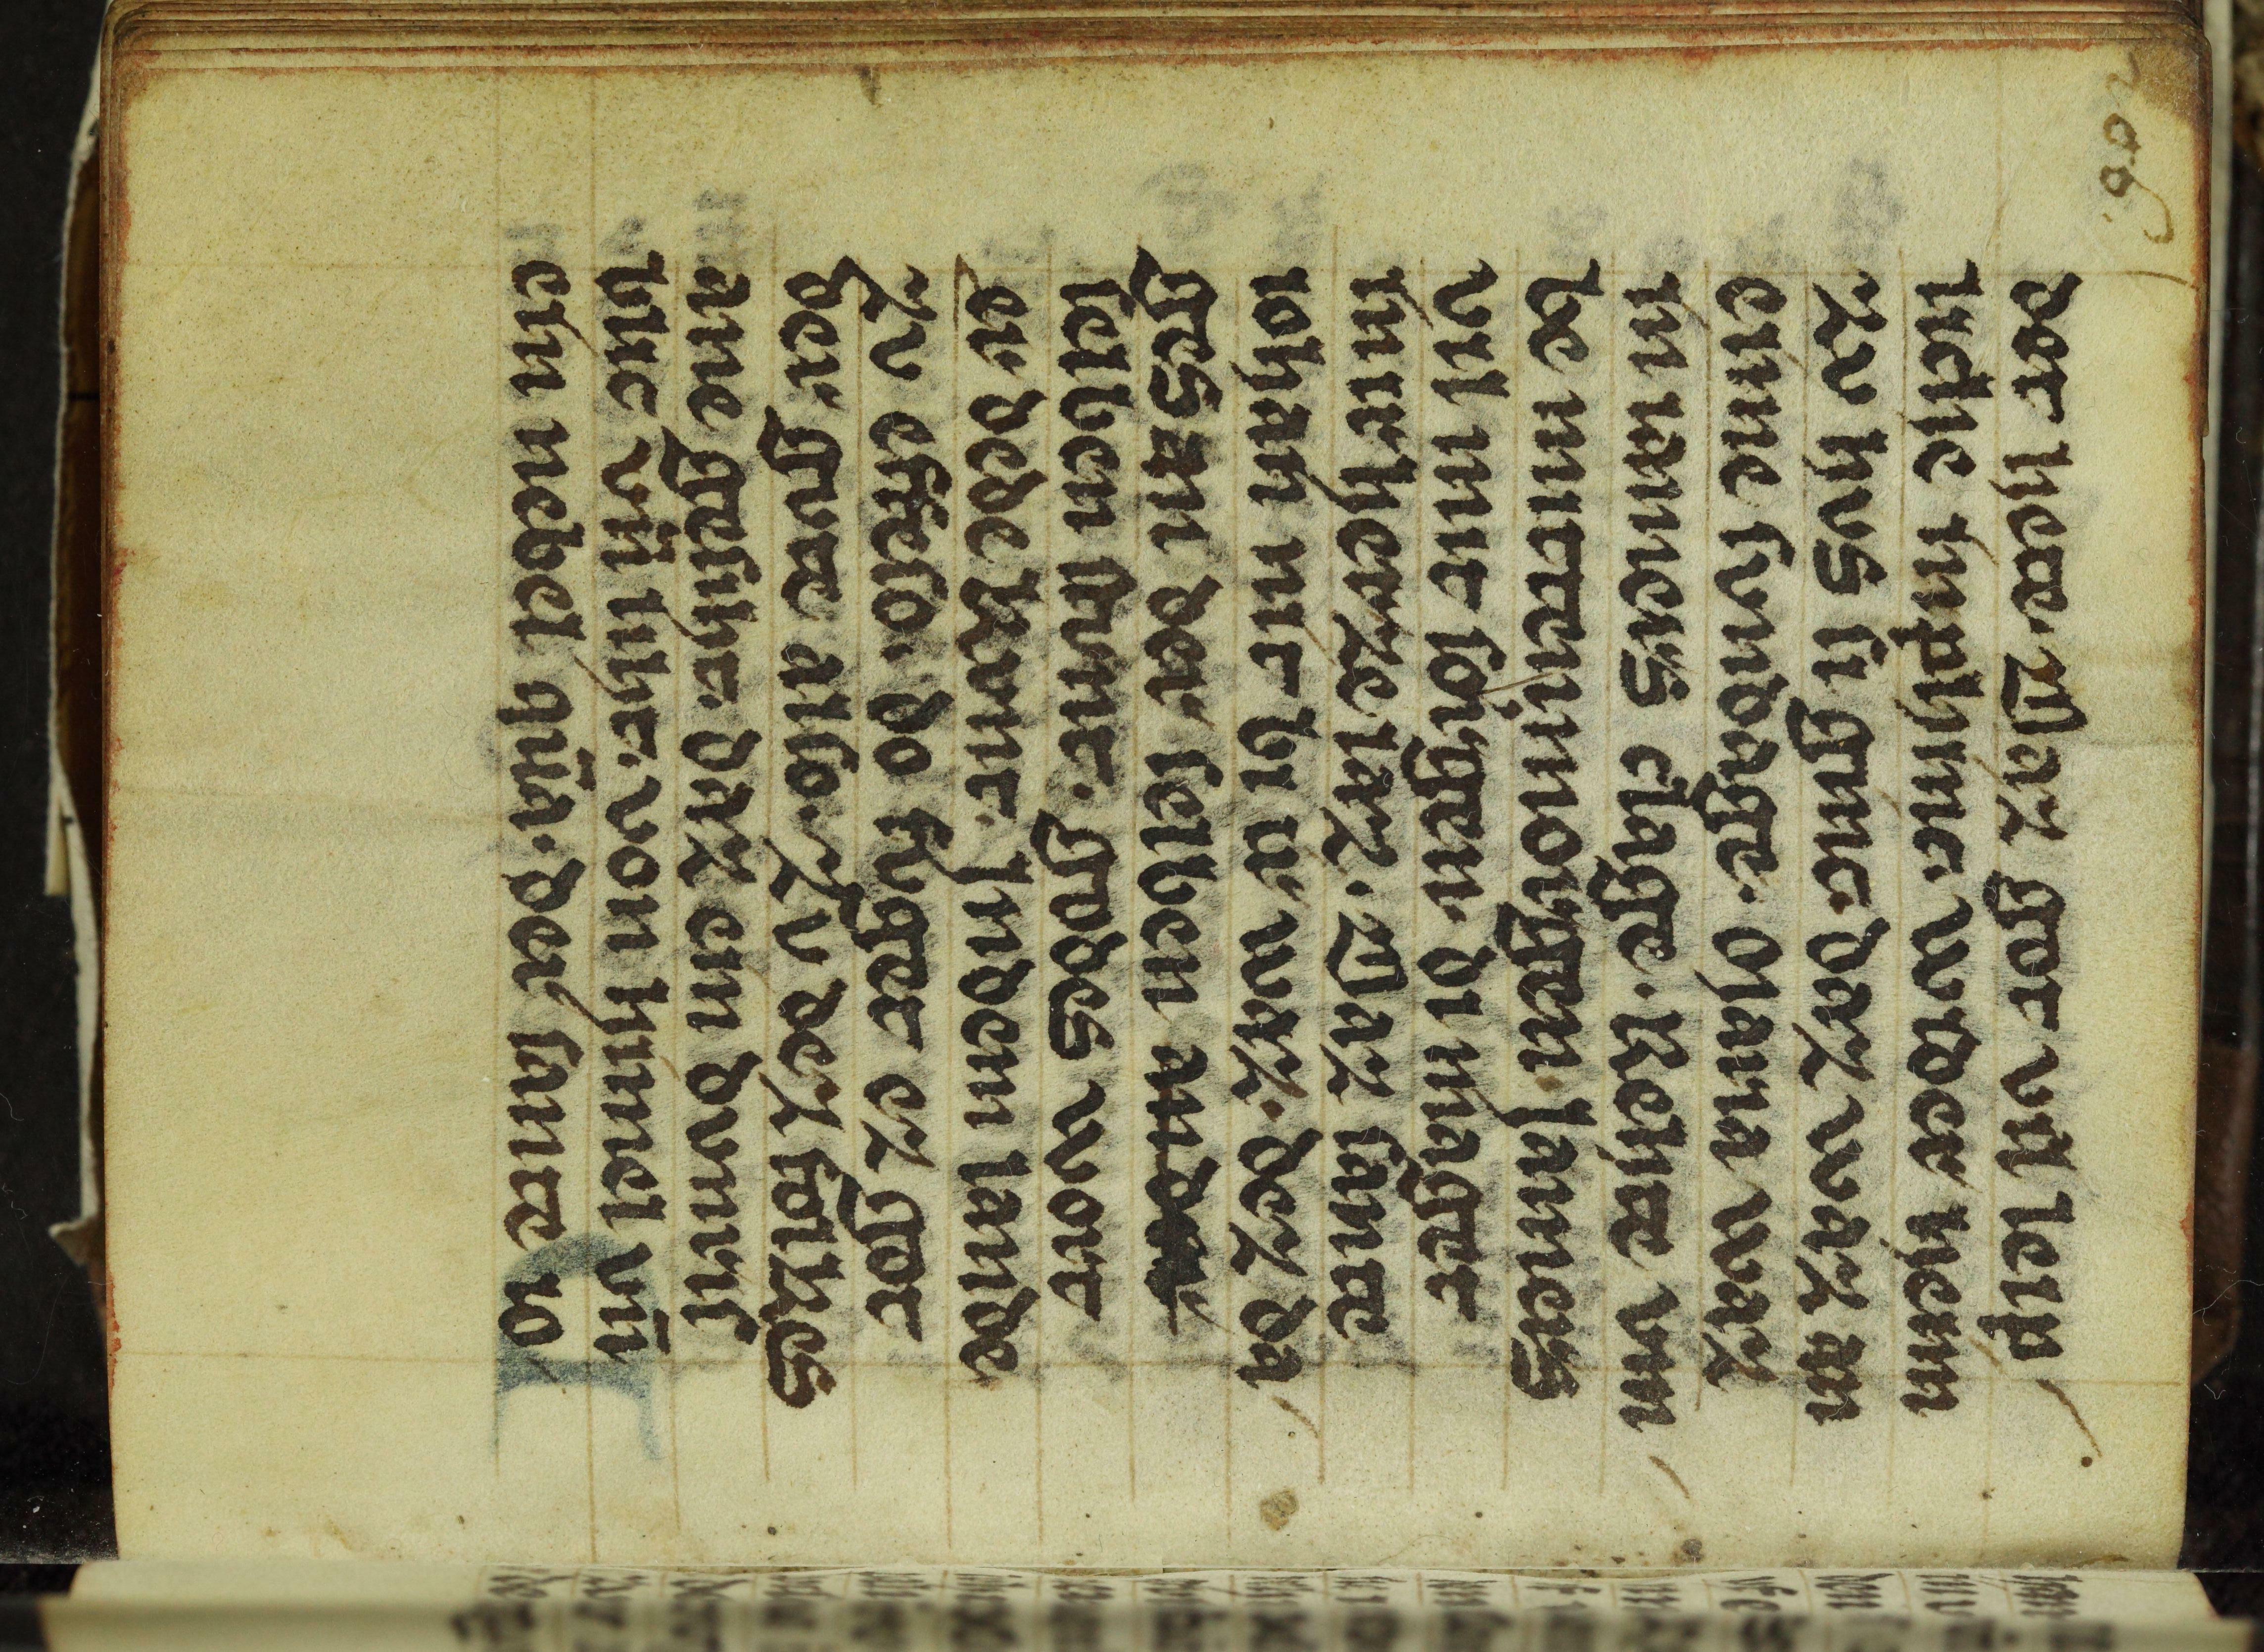 dot hete. Daz got vil leip
liche inphinc. weder heim
zv hvs si ginc. daz waz an
eime svndage. Maria waz
in iamers clage. Rehte vm
be mittinmorgen. iamers
vil mit sorgen. di maget
in ir herze laz. Daz sante
iohan nit bi ir waz. dez da
ges an der selben
selben stunt. godes wort
er dede kunt. in dem lande
zv effeso. do ez got
der gvte also. zv dez folkes
ane gesiht. daz ein dvnst
vn̄ liht. von himel vn̄
ein nebel quā. der sante io